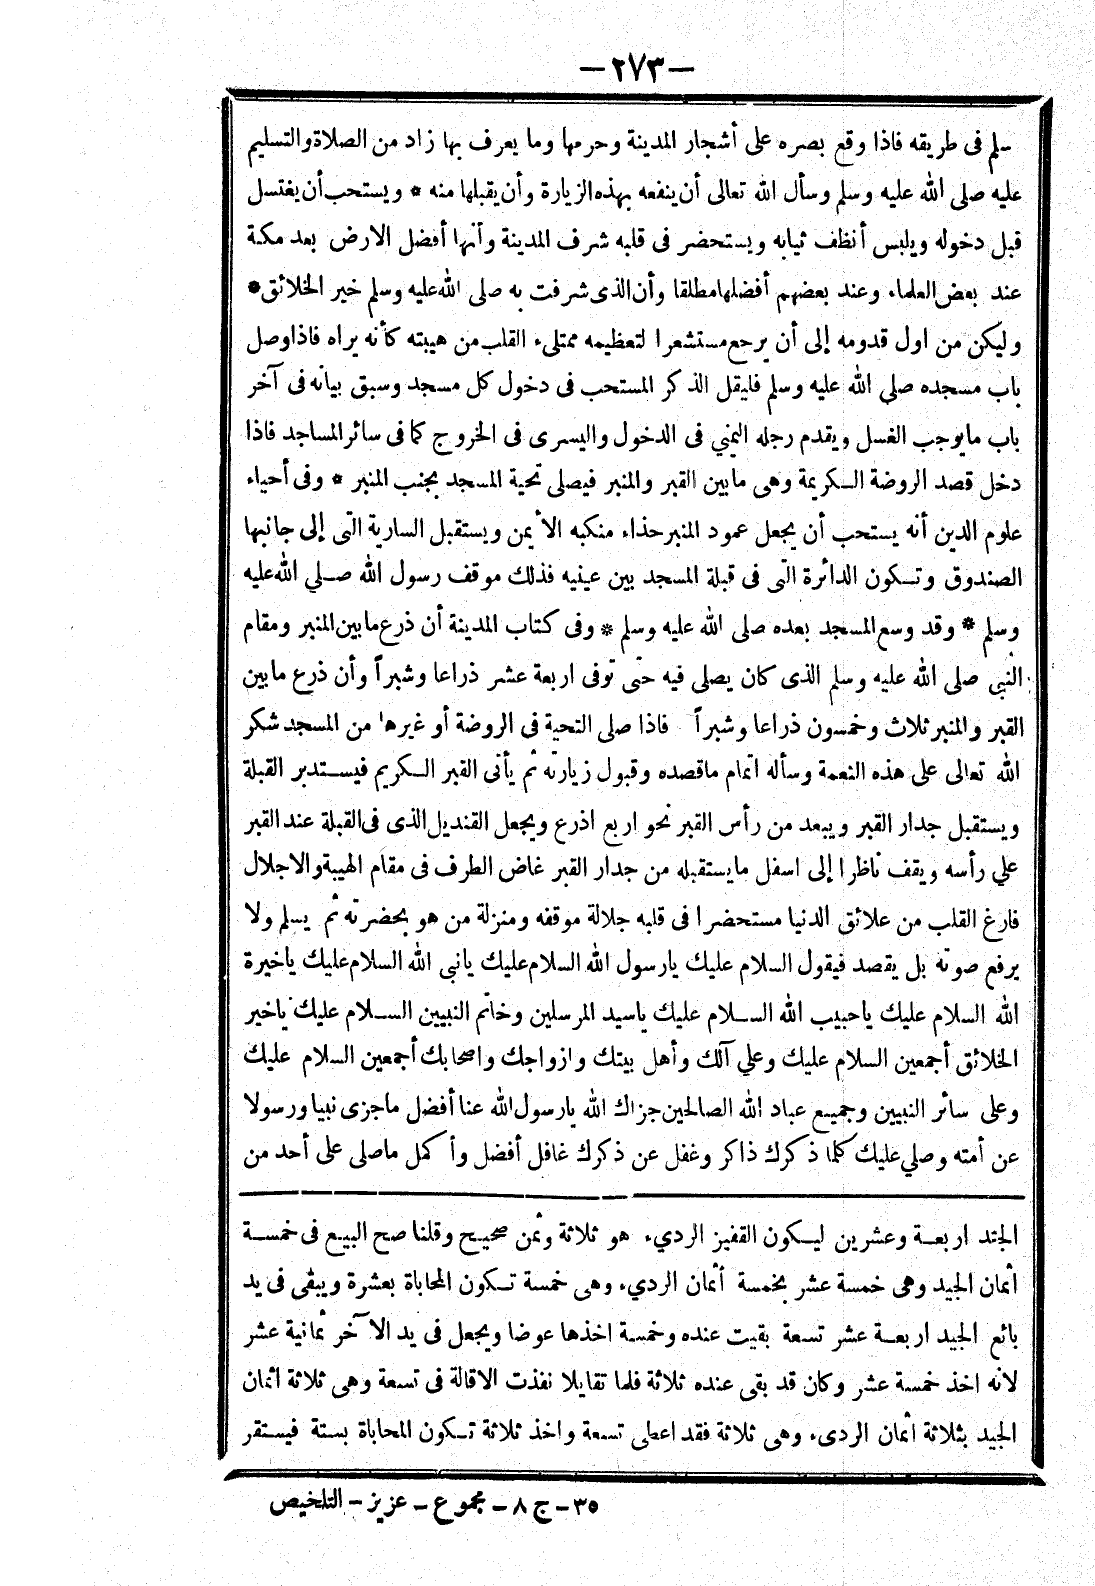 — ٢٧٣ —
سلم فى طريقه فاذا وقع بصره على أشجار المدينة وحرمها وما يعرف بها زاد من الصلاة والتسليم
عليه صلى الله عليه وسلم وسأل الله تعالى أن ينفعه بهذه الزيارة وأن يقبلها منه * ويستحب أن يغتسل
قبل دخوله ويلبس أنظف ثيابه ويستحضر فى قلبه شرف المدينة وأنها أفضل الارض بعد مكة
عند بعض العلماء وعند بعضهم أفضلها مطلقا وأن الذى شرفت به صلى الله عليه وسلم خير الخلائق *
وليكن من اول قدومه إلى أن يرجع مستشعرا لتعظيمه ممتلىء القلب من هيبته كأنه يراه فاذا وصل
باب مسجده صلى الله عليه وسلم فليقل الذكر المستحب فى دخول كل مسجد وسبق بيانه فى آخر
باب مايوجب الغسل ويقدم رجله اليمني فى الدخول واليسرى فى الخروج كما فى سائر المساجد فاذا
دخل قصد الروضة الكريمة وهى مابين القبر والمنبر فيصلى تحية المسجد بجنب المنبر * وفى أحياء
علوم الدين أنه يستحب أن يجعل عمود المنبر حذاء منكبه الأيمن ويستقبل السارية التى إلى جانبها
الصندوق وتكون الدائرة التى فى قبلة المسجد بين عينيه فذلك موقف رسول الله صلي الله عليه
وسلم * وقد وسع المسجد بعده صلى الله عليه وسلم * وفى كتاب المدينة أن ذرع مابين المنبر ومقام
النبى صلى الله عليه وسلم الذى كان يصلى فيه حتى توفى اربعة عشر ذراعا وشبراً وأن ذرع مابين
القبر والمنبر ثلاث وخمسون ذراعا وشبراً فاذا صلى التحية فى الروضة أو غيرها من المسجد شكر
الله تعالى على هذه النعمة وسأله اتمام ماقصده وقبول زيارته ثم يأتى القبر الكريم فيستدبر القبلة
ويستقبل جدار القبر ويبعد من رأس القبر نحو اربع اذرع ويجعل القنديل الذى فى القبلة عند القبر
علي رأسه ويقف ناظرا إلى اسفل مايستقبله من جدار القبر غاض الطرف فى مقام الهيبة والاجلال
فارغ القلب من علائق الدنيا مستحضرا فى قلبه جلالة موقفه ومنزلة من هو بحضرته ثم يسلم ولا
يرفع صوته بل يقصد فيقول السلام عليك يارسول الله السلام عليك يانبى الله السلام عليك ياخيرة
الله السلام عليك ياحبيب الله السلام عليك ياسيد المرسلين وخاتم النبيين السلام عليك ياخير
الخلائق أجمعين السلام عليك وعلي آلك وأهل بيتك وازواجك واصحابك أجمعين السلام عليك
وعلى سائر النبيين وجميع عباد الله الصالحين جزاك الله يارسول الله عنا أفضل ماجزى نبيا ورسولا
عن أمته وصلي عليك كلما ذكرك ذاكر وغفل عن ذكرك غافل أفضل وأكمل ماصلى على أحد من
الجيد اربعة وعشرين ليكون القفيز الرديء هو ثلاثة وثمن صحيح وقلنا صح البيع فى خمسة
اثمان الجيد وهى خمسة عشر بخمسة أثمان الرديء وهى خمسة تكون المحاباة بعشرة ويبقى فى يد
بائع الجيد اربعة عشر تسعة بقيت عنده وخمسة اخذها عوضا ويجعل فى يد الآخر ثمانية عشر
لانه اخذ خمسة عشر وكان قد بقى عنده ثلاثة فلما تقايلا نفذت الاقالة فى تسعة وهى ثلاثة اثمان
الجيد بثلاثة اثمان الردىء وهى ثلاثة فقد اعطى تسعة واخذ ثلاثة تكون المحاباة بستة فيستقر
٣٥ – ج ٨ – مجموع – عزيز – التلخيص